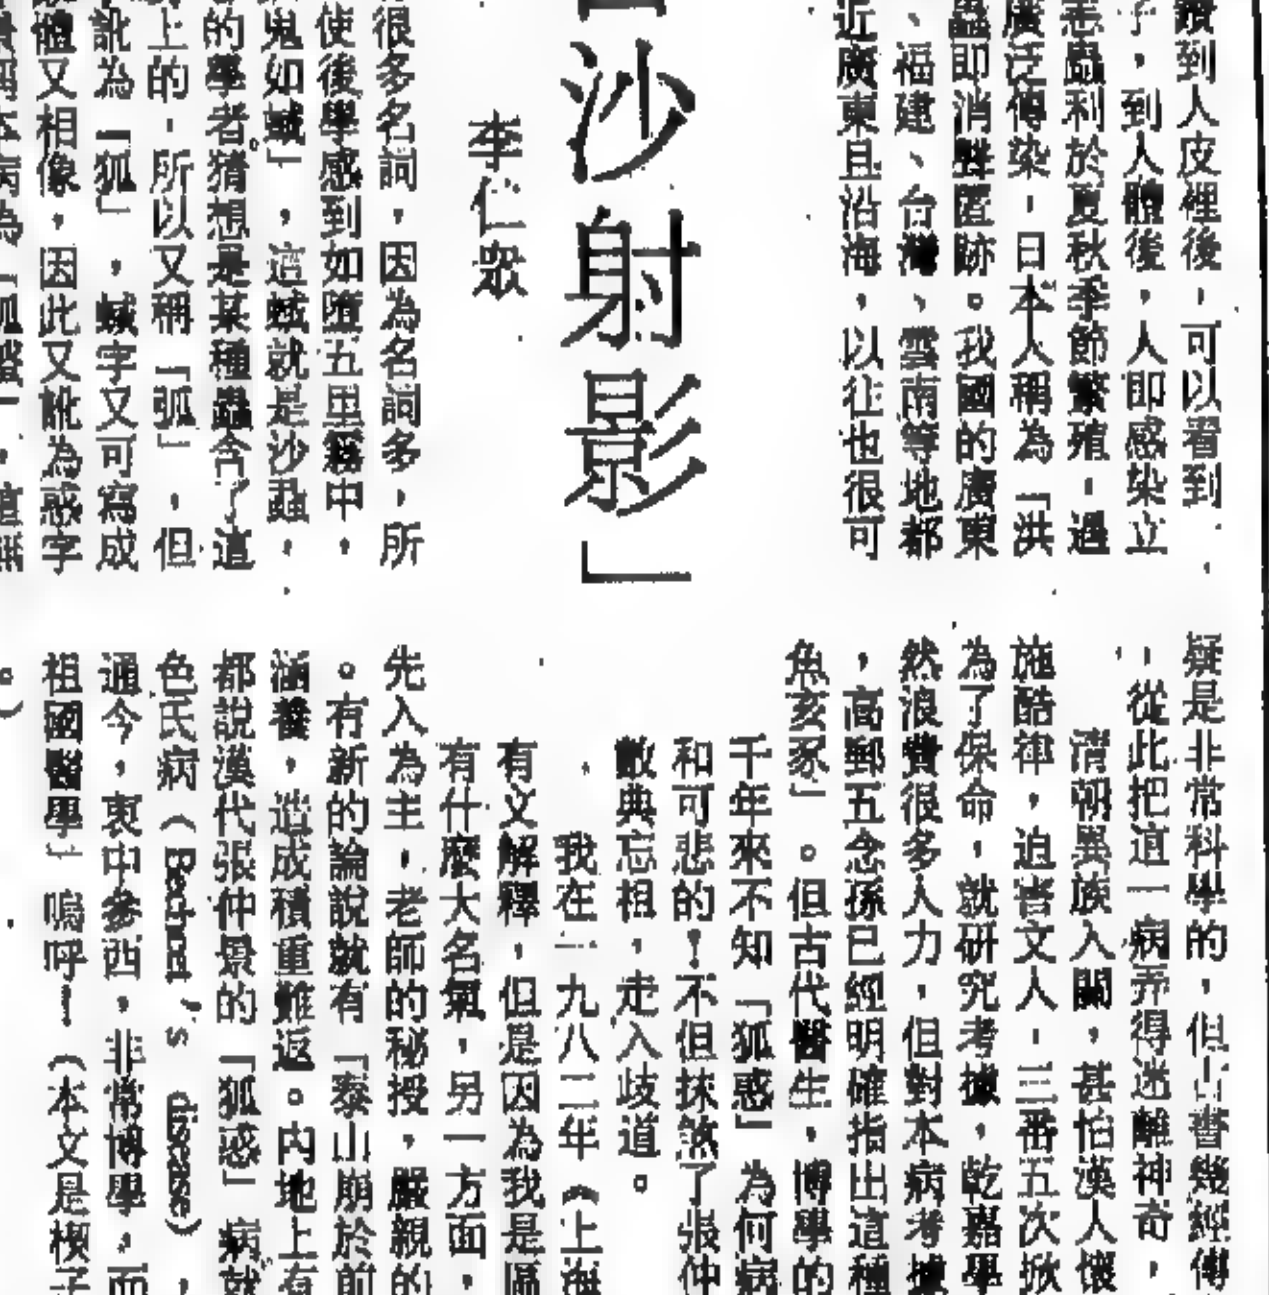 鑽到人皮裡後,可以看到
子,到人體後,人即感染立
恙蟲利於夏秋季節繁殖,過
廣泛傳染,日本人稱為「洪
蟲即消聲匿跡。我國的廣東
、福建、台灣、雲南等地都
近廣東且沿海,以往也很可
沙射影」
李仁眾
很多名詞,因為名詞多,所
使後學感到如墮五里霧中,
鬼如蜮」,這蜮就是沙蝨,
的學者猜想是某種蟲含了這
上的,所以又稱「弧」,但
訛為「狐」,蜮字又可寫成
體又相像,因此又訛為惑字
本病為「狐
疑是非常科學的,但古書幾經傳
,從此把這一病弄得迷離神奇,
清朝異族入關,甚怕漢人懷
施酷律,迫害文人,三番五次掀
為了保命,就研究考據,乾嘉學
然浪費很多人力,但對本病考據
,高郵五念孫已經明確指出這種
魚亥豕」。但古代醫生,博學的
千年來不知「狐惑」為何病
和可悲的!不但抹煞了張仲
數典忘祖,走入歧道。
我在一九八二年(上海
有文解釋,但是因為我是區
有什麼大名氣,另一方面,
先入為主,老師的秘授,嚴親的
。有新的論說就有「泰山崩於前
涵養,造成積重難返。內地上有
都說漢代張仲景的「狐惑」病就
色氏病(Bechcet's disease),
通今,衷中參西,非常博學,而
祖國醫學」嗚呼!(本文是楔子